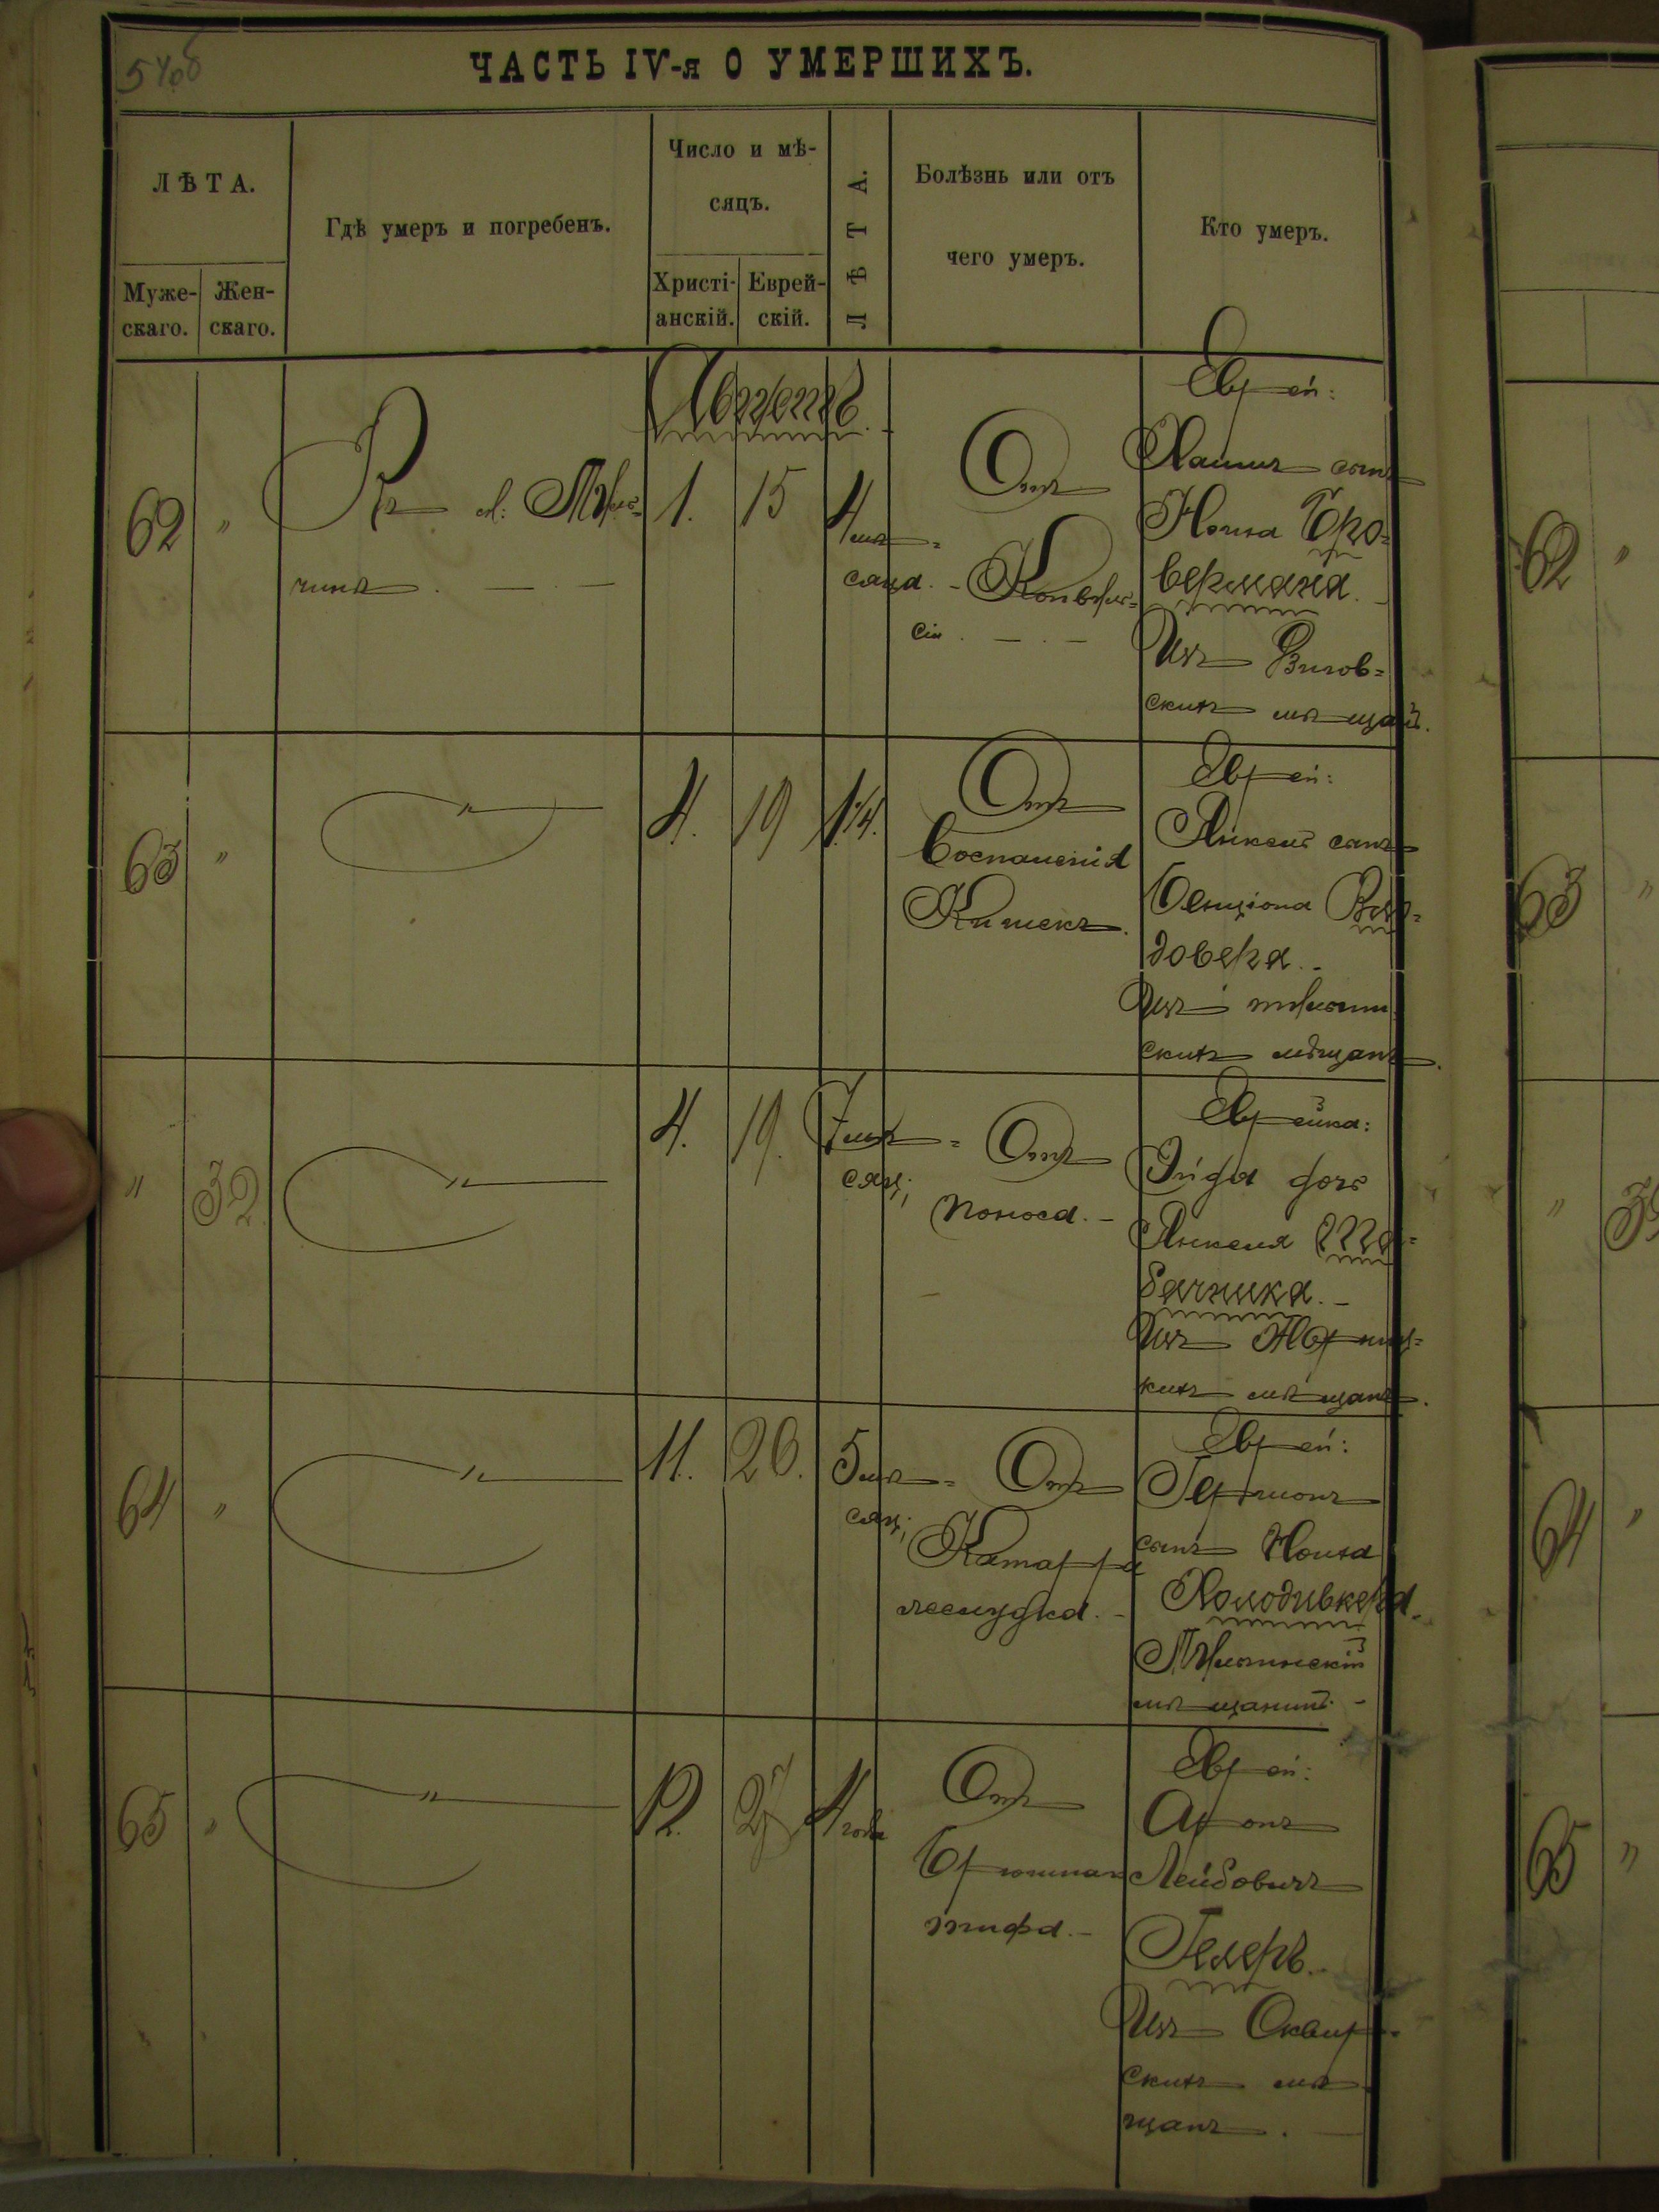 54об
ЧАСТЬ IV-я О УМЕРШИХЪ.
ЛѢТА.
Муже-
скаго.
Жен-
скаго.
Гдѣ умеръ и погребенъ.
Число и мѣ-
сяцъ.
Христі-
анскій.
Еврей-
скій.
ЛѢТА.
Болѣзнь или отъ
чего умеръ.
Кто умеръ.
Августъ.
62 "
Въ м:
1. 15
4 мѣ=
сяца.
Отъ
Конвуль=
сіи.
Еврей:
Хаимъ сынъ
Іойна Бро=
вермана.
Изъ
скихъ мѣщанъ.
63 "
"
4. 19 1 1/4.
Отъ
Воспаленія
Кишекъ.
Еврей:
Янкель сынъ
Бенціона
довера.
Изъ
скихъ мѣщанъ.
" 32.
"
4. 19.
7 мѣ=
сяц;
Отъ
поноса.
Еврейка:
дочь
Янкеля Та=
бачника.
Изъ
кихъ мѣщанъ.
64 "
"
11. 26.
5 мѣ=
сяц;
Отъ
Катарра
желудка.
Еврей:
Гершонъ
сынъ Іойна
Холодивкера.
мѣщанинъ.
65 "
"
12. 27
4 года
Отъ
Брюшнаго
тифа.
Еврей:
Аронъ
Лейбовичъ
Гелеръ.
Изъ Сквир=
скихъ мѣ
щанъ.
62 "
63 "
"
64 "
65 "